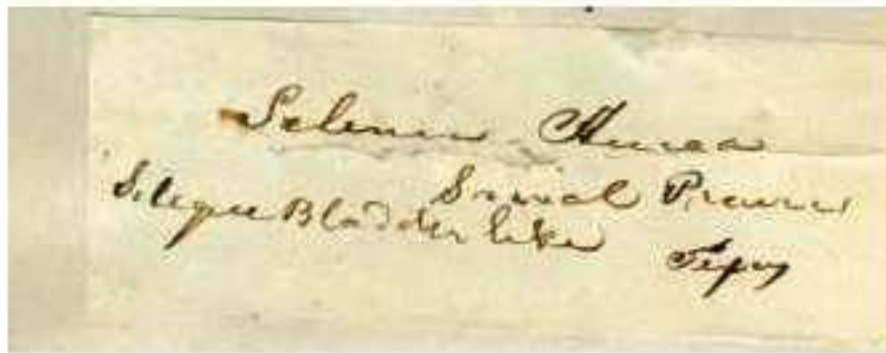 Selenia Aurea
Smal Prairies
Silique Bladder like Texas